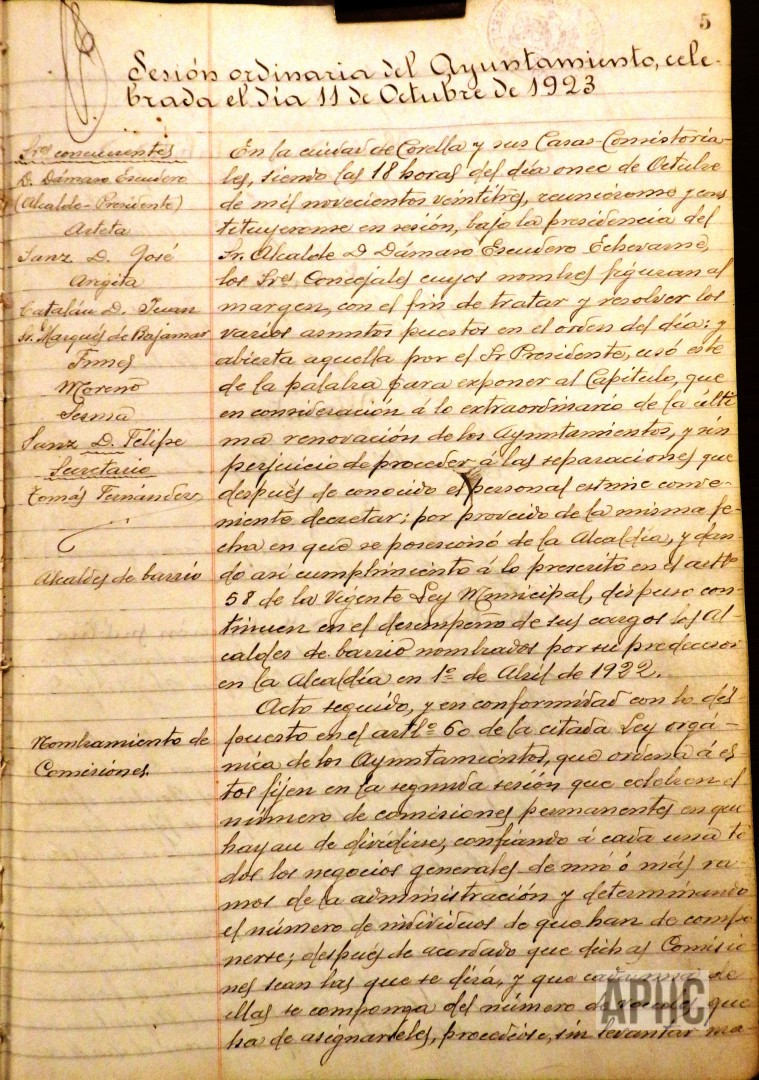 5
Sesión ordinaria del Ayuntamiento, cele-
brada el día 11 de Octubre de 1923
Sres concurrentes
D. Dámaso Escudero
(Alcalde-Presidente)
Arteta
Sanz D. José
Angita
Catalán D. Juan
Sr. Marqués de Bajamar
Moreno
Sesma
Sanz D. Felipe
Secretario
Tomás Fernández
Alcaldes de barrio
Nombramiento de
Comisiones
En la ciudad de Corella y sus Casas-Consistoria-
les, siendo las 18 horas del día once de Octubre
de mil novecientos veintitrés, reuniéronse y cons
tituyeronse en sesión, bajo la presidencia del
Sr. Alcalde D Dámaso Escudero Echevarne,
los Sres. Concejales cuyos nombres figuran al
margen, con el fin de tratar y resolver los
varios asuntos puestos en el orden del día: y
abierta aquella por el Sr Presidente, usó este
de la palabra para exponer al Capítulo, que
en consideración á lo extraordinario de la últi
ma renovación de los Ayuntamientos, y sin
perjuicio de proceder á las separaciones que
después de conocido el personal estime conve-
niente decretar; por proveido de la misma fe-
cha en que se posesionó de la Alcaldía, y dan-
do así cumplimiento á lo prescrito en el artº
58 de la Vigente Ley Municipal, dispuso con-
tinuen en el desempeño de sus cargos los Al-
caldes de barrio nombrados por su predecesor
en la Alcaldía en 1º de Abril de 1922.
Acto seguido, y en conformidad con lo dis-
puesto en el artlº 60 de la citada Ley orgá-
nica de los Ayuntamientos, que ordena á es-
tos fijen en la segunda sesión que celebren el
número de comisiones permanentes en que
hayan de dividirse, confiando á cada una to
dos los negocios generales de uno ó más ra-
mos de la administración y determinando
el número de individuos de que han de compo
nerse; después de acordado que dichas Comisio
nes sean las que se dirá, y que cada una de
ellas se componga del número de vocales que
ha de asignarseles, procedióse, sin levantar ma-
APHC